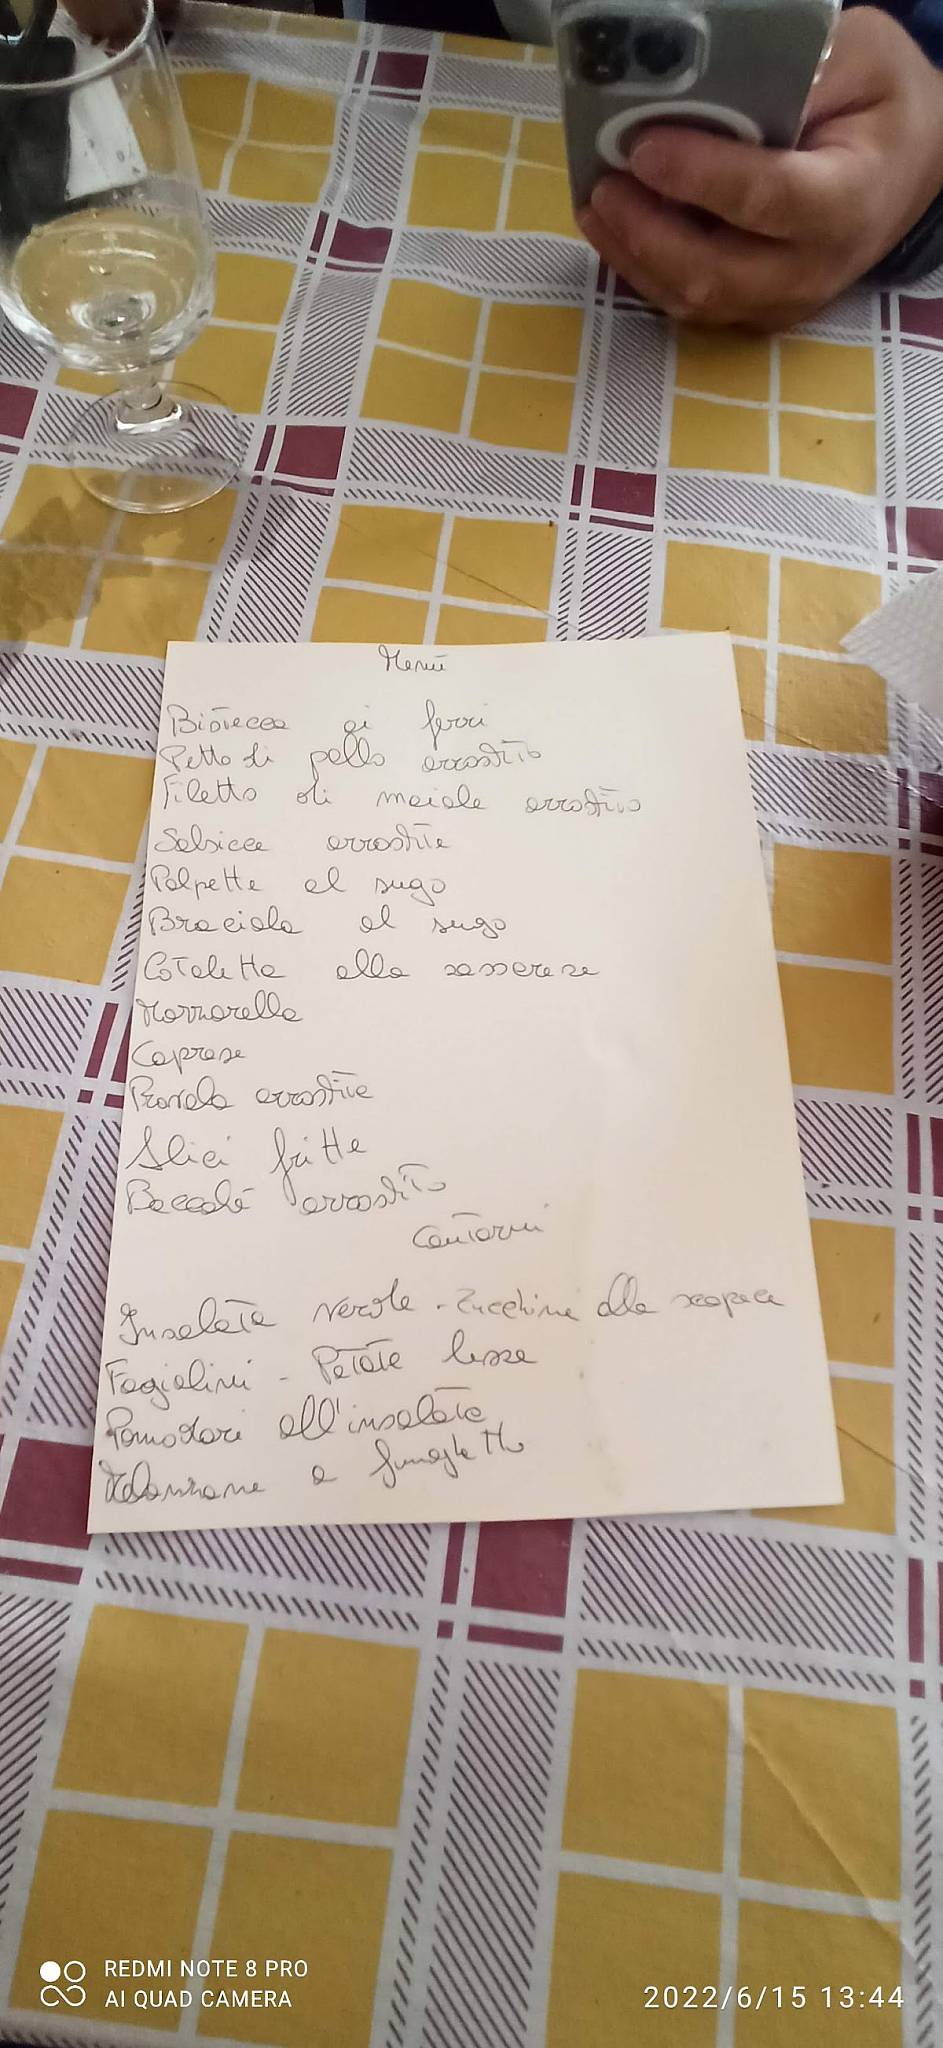 Menù
Bistecca ai ferri
Petto di pollo arrostito
Filetto di maiale arrostito
Salsicce arrostite
Polpette al sugo
Braciola al sugo
Cotoletta alla sorrentina
Mozzarella
Caprese
Provola arrostita
Alici fritte
Baccalà arrostito
Contorni
Insalata verde - Zucchine alla scapece
Fagiolini - Patate lesse
Pomodori all'insalata
Melanzane a funghetto
REDMI NOTE 8 PRO
AI QUAD CAMERA
2022/6/15 13:44